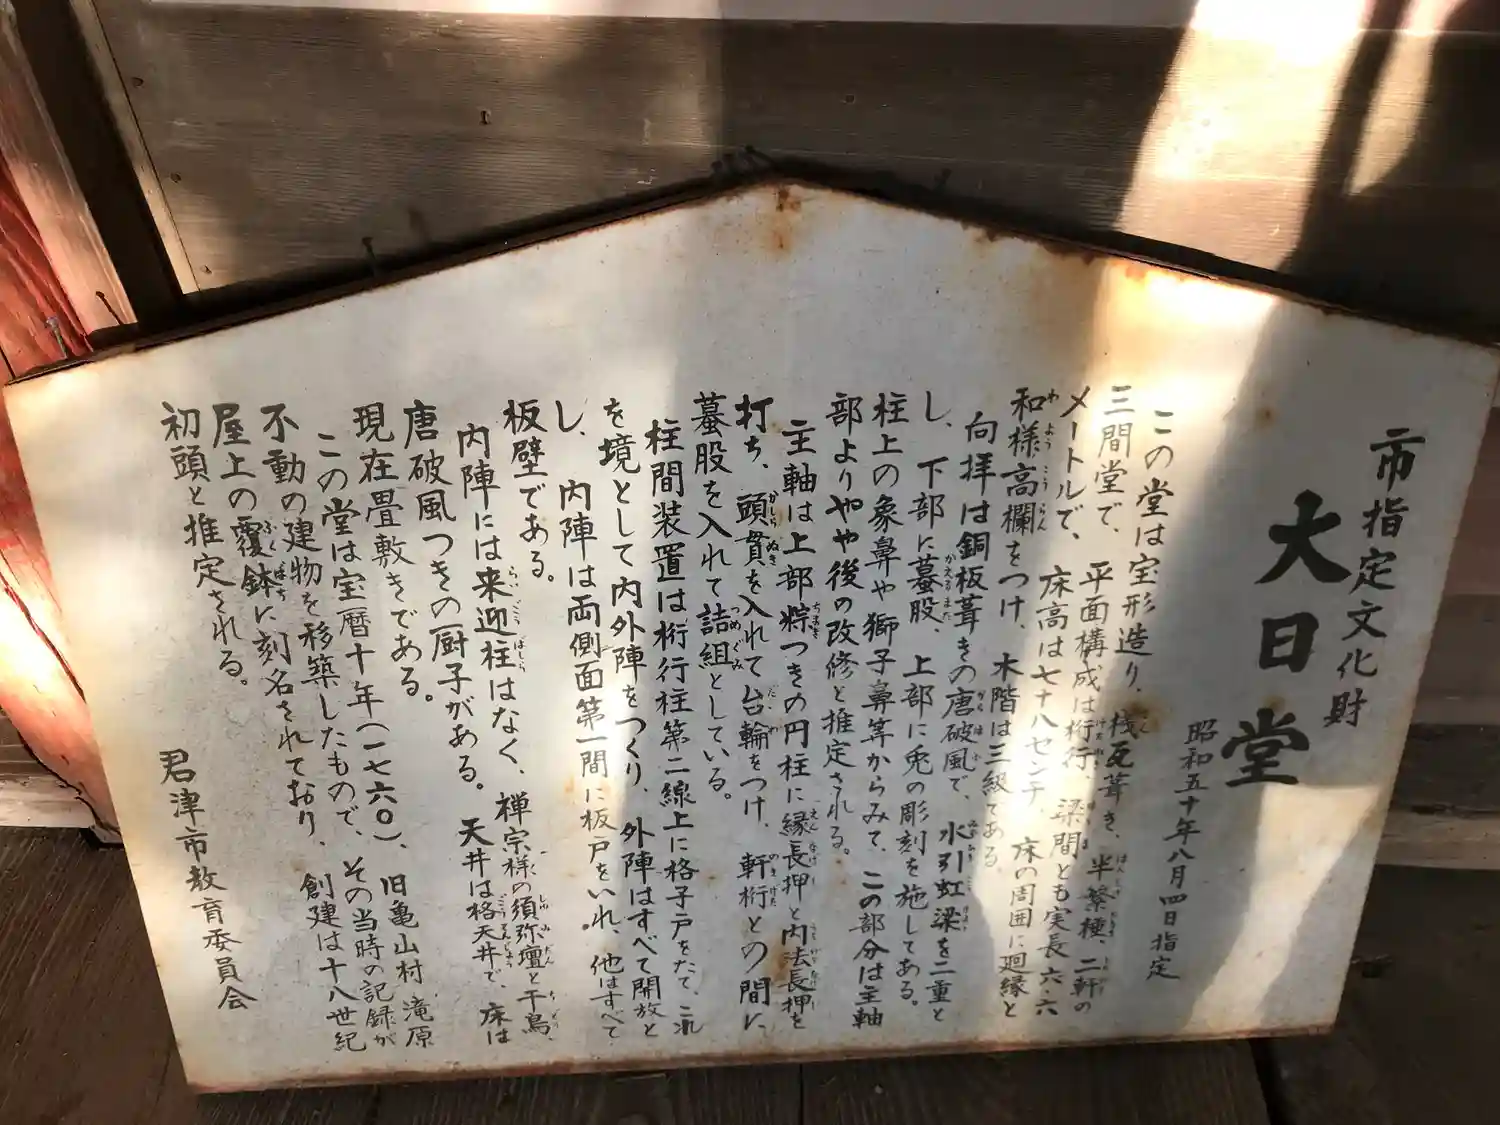 市指定文化財
大日堂
昭和五十年八月四日指定
この堂は宝形造り、桟瓦葺き、半繁棰、二軒の
三間堂で、平面構成は桁行、梁間とも実長六・六
メートルで、床高は七十八センチ、床の周囲に廻縁と
和様高欄をつけ、木階は三級である。
向拝は銅板葺きの唐破風で、水引虹梁を二重と
し、下部に蟇股、上部に兎の彫刻を施してある。
柱上の象鼻や獅子鼻等からみて、この部分は主軸
部よりやや後の改修と推定される。
主軸は上部粽つきの円柱に縁長押と内法長押を
打ち、頭貫を入れて台輪をつけ、軒桁との間に
蟇股を入れて詰組としている。
柱間装置は桁行柱第二線上に格子戸をたて、これ
を境として内外陣をつくり、外陣はすべて開放と
し、内陣は両側面第一間に板戸をいれ、他はすべて
板壁である。
内陣には来迎柱はなく、禅宗様の須弥壇と千鳥、
唐破風つきの厨子がある。天井は格天井で、床は
現在畳敷きである。
この堂は宝暦十年(一七六〇)、旧亀山村滝原
不動の建物を移築したもので、その当時の記録が
屋上の覆鉢に刻名されており、創建は十八世紀
初頭と推定される。
君津市教育委員会